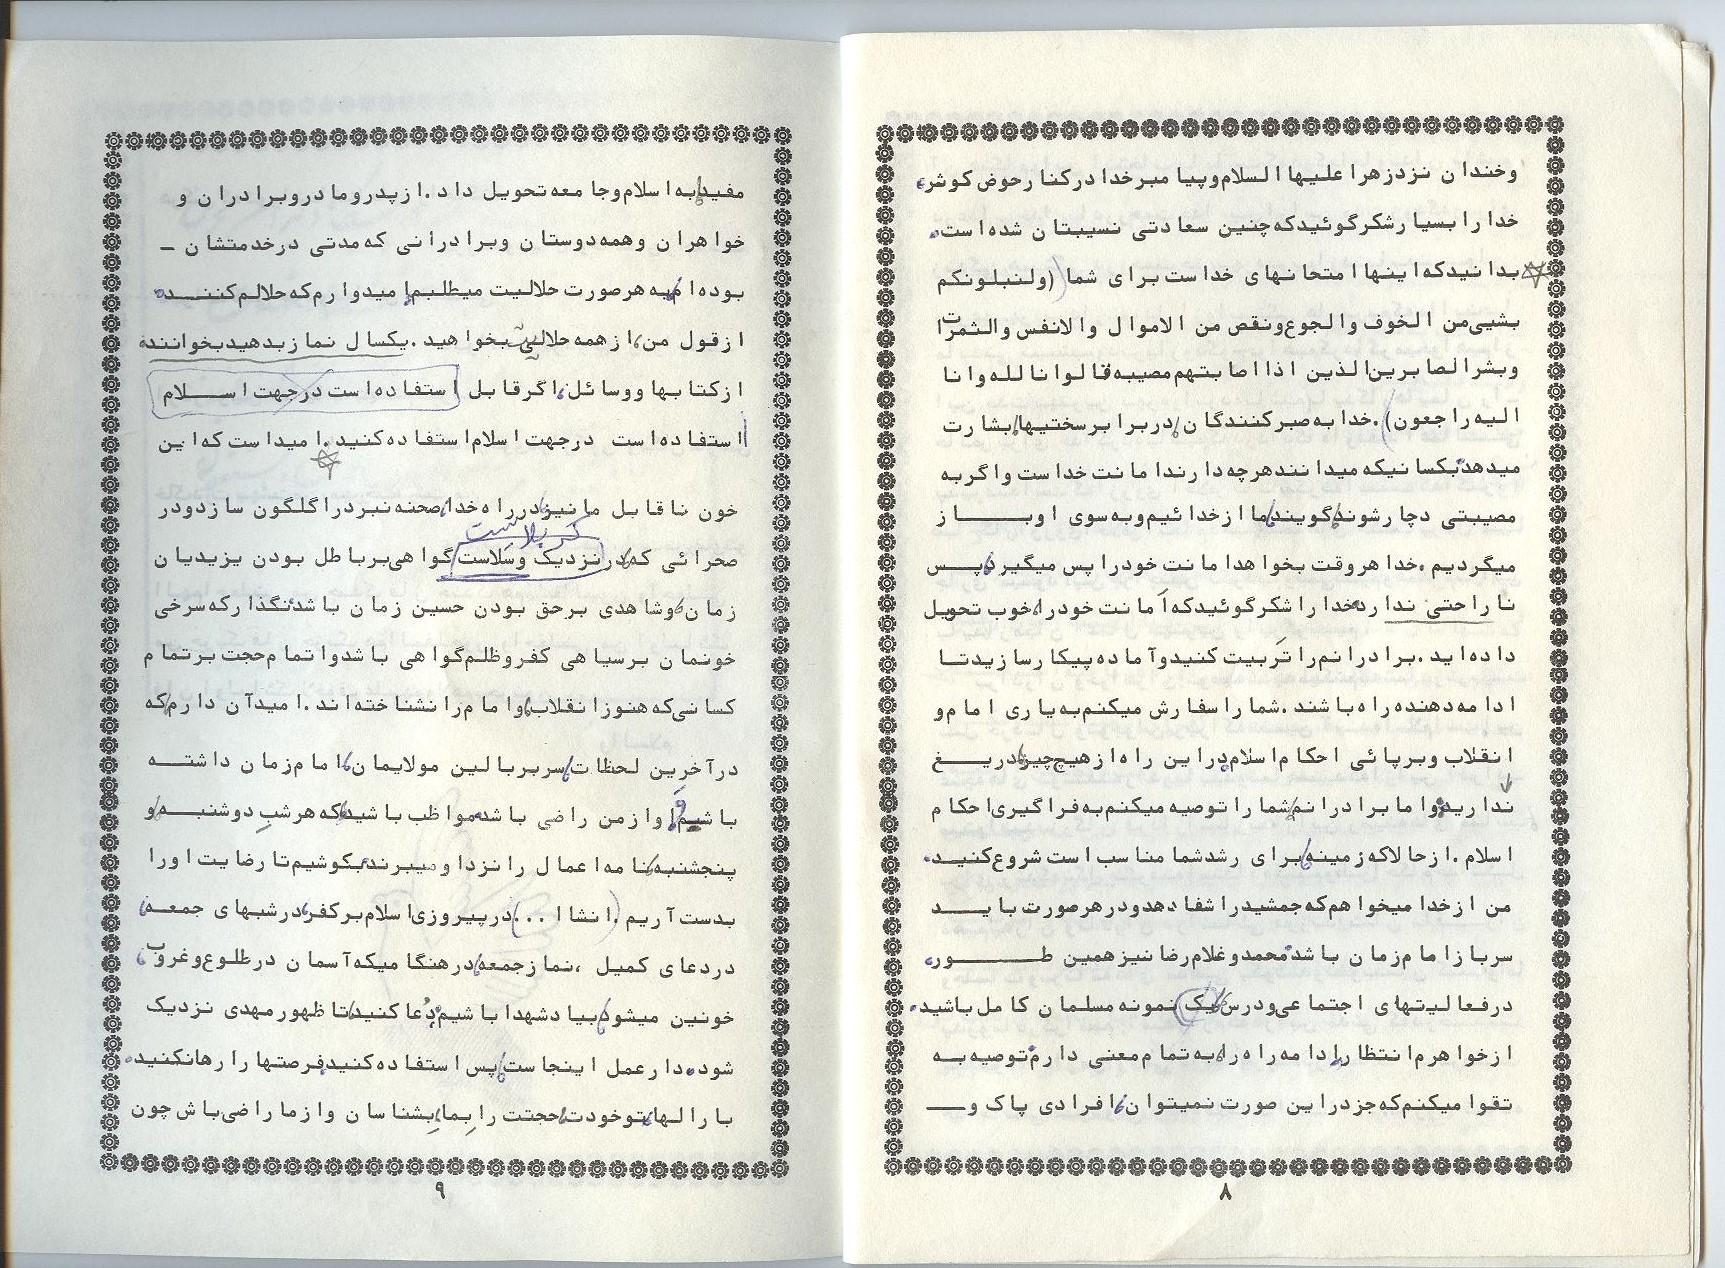 وخندان نزدزهرا علیها السلام وپیامبرخدا درکنارحوض کوثر،
خدا را بسیارشکرگوئیدکه چنین سعادتی نسیبتان شده است.
بدانیدکه اینها امتحانهای خداست برای شما (ولنبلونکم
بشیی من الخوف والجوع ونقص من الاموال والانفس والثمرات
وبشرالصابرین الذین اذا اصابتهم مصیبه قالوا انا لله وانا
الیه راجعون). خدا به صبرکنندگان، دربرابرسختیها، بشارت
میدهد. بکسانیکه میدانندهرچه دارندامانت خداست واگربه
مصیبتی دچارشوند، گویند، ما ازخدائیم وبه سوی اوبـــاز
میگردیم. خدا هروقت بخواهدامانت خودرا پس میگیرد، پــس
ناراحتی ندارد. خدا را شکرگوئیدکه اَمانت خودرا، خوب تحویل
داده اید. برادرانم را تَربیت کنیدوآماده پیکارسازیدتــا
ادامه دهنده راه باشند. شما را سفارش میکنم به یاری امام و
انقلاب وبرپائی احکام اسلام، دراین راه ازهیچ چیز، دریــغ
ندارید. واما برادرانم، شما را توصیه میکنم به فراگیری احکام
اسلام. ازحالاکه زمینه، برای رشدشما مناسب است شروع کنیــد.
من ازخدا میخواهم که جمشیدرا شفادهدودرهرصورت بایـــد
سربازامام زمان باشد. محمدوغلامرضا نیزهمین طـــــور.
درفعالیتهای اجتماعی ودرس یک نمونه مسلمان کامل باشید.
ازخواهرم انتظار، ادامه راه را، به تمام معنی دارم. توصیه بــه
تقوا میکنم که جزدراین صورت نمیتوان، افرادی پاک و ــ
۸
مفید، به اسلام وجامعه تحویل داد. ازپدرومادروبرادران و
خواهران وهمه دوستان وبرادرانی که مدتی درخدمتشان ــ
بوده ام، به هرصورت حلالیت میطلبم، امیدوارم که حلالم کننــد.
ازقول من، ازهمه حلالیت بخواهید. یکسال نمازبدهیدبخوانند.
ازکتابها ووسائل، اگرقابل استفاده است درجهت اســـلام
استفاده است درجهت اسلام استفاده کنید. امیداست که این
خون ناقابل مانیز، درراه خدا، صحنه نبردراگلگون سازدودر
کربلاست
صحرائی که، در نزدیک وسَلاست گواهی برباطل بودن یزیدیان
زمان، وشاهدی برحق بودن حسین زمان باشد. نگذارکه سرخی
خونمان برسیاهی کفروظلم گواهی باشدواتمام حجت برتمام
کسانی که هنوزانقلاب، وامام را نشناخته اند. امیدآن دارم، که
درآخرین لحظات، سربربالین مولایمان، امام زمان داشتــه
باشیم، و اوازمن راضی باشد. مواظب باشید، که هرشبِ دوشنبــه، و
پنجشنبه، نامه اعمال را نزداومیبرند. بکوشیم تارضایت اورا
بدست آریم. (انشاا...) درپیروزی اسلام برکفر، درشبهای جمعــه،
دردعای کمیل، نمازجمعه، درهنگامیکه آسمان درطلوع وغروب،
خونین میشود، بیادشهدا باشیم. دُعا کنید، تا ظهورمهدی نزدیک
شود. دارعمل اینجاست، پس استفاده کنید، فرصتها را رهانکنید.
بارالها، توخودت، حجتت را بِما، بِشناسان وازما راضی باش چون
۹